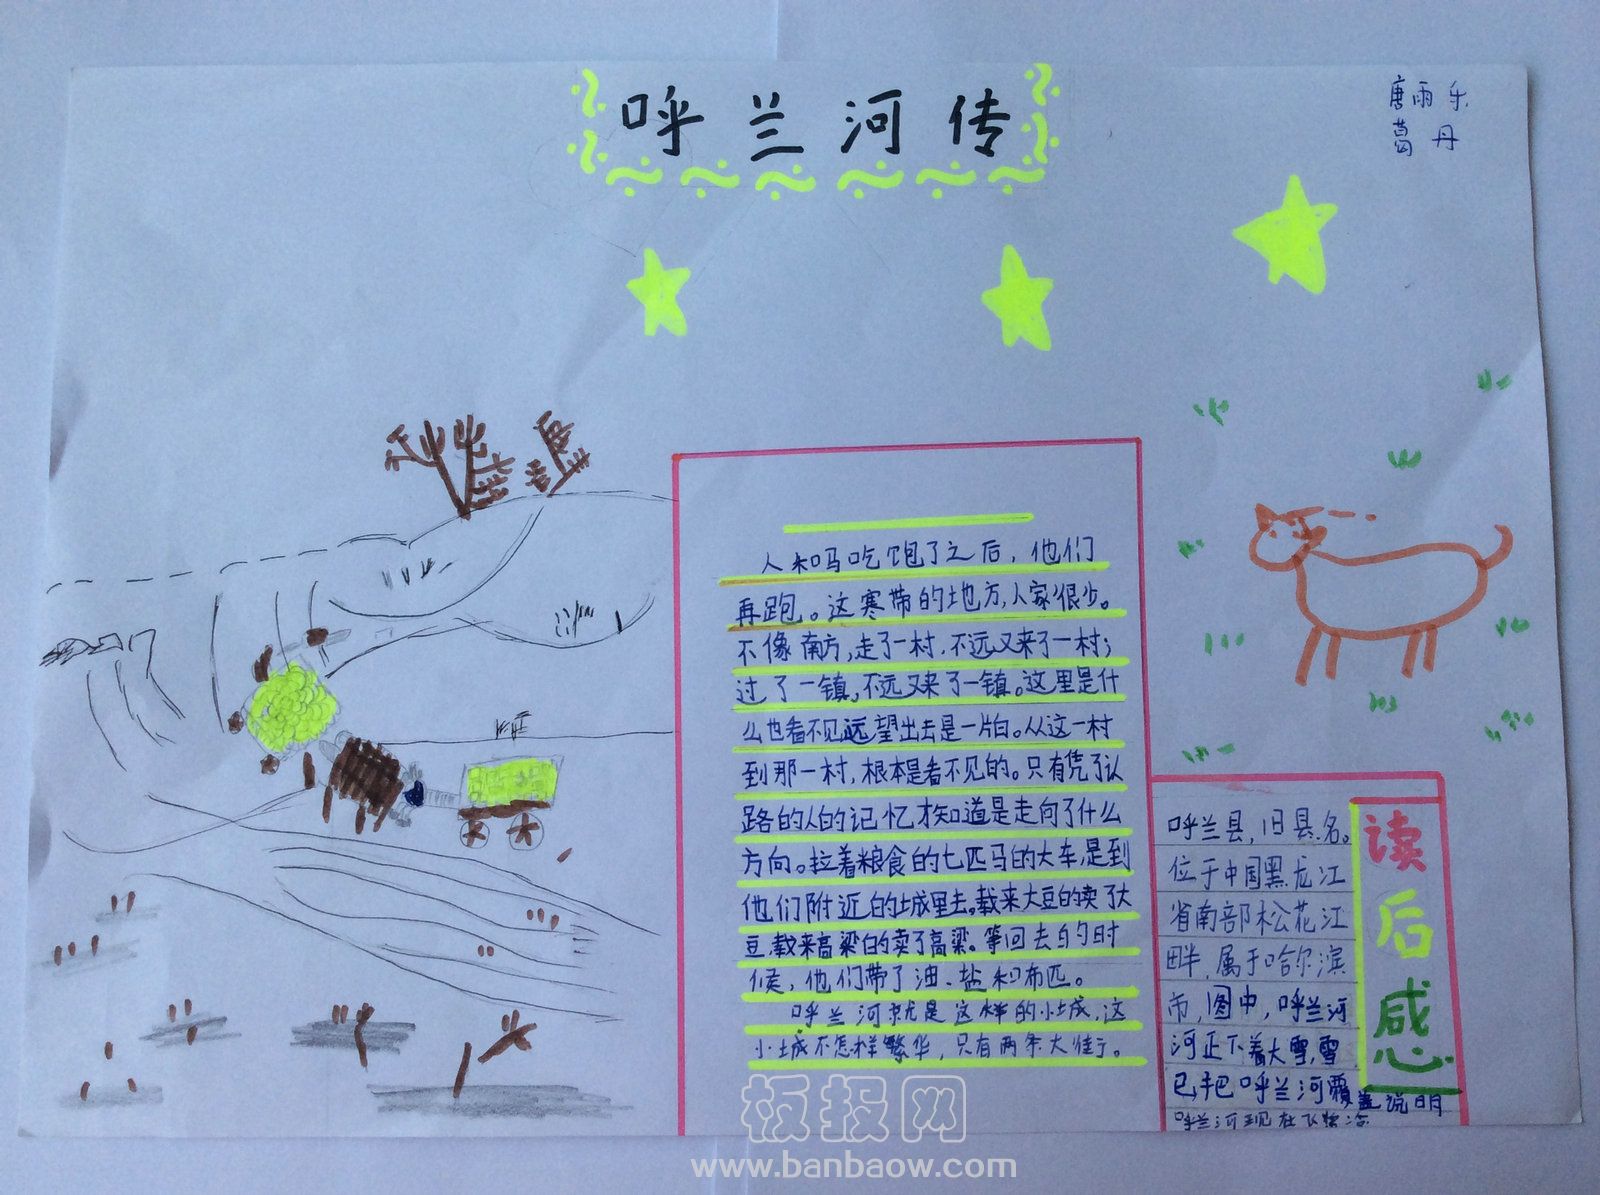 呼兰河传
唐雨乐
葛丹
人和马吃饱了之后，他们
再跑。这寒带的地方，人家很少。
不像南方，走了一村，不远又来了一村；
过了一镇，不远又来了一镇。这里是什
么也看不见，远望出去是一片白。从这一村
到那一村，根本是看不见的。只有凭了认
路的人的记忆才知道是走向了什么
方向。拉着粮食的七匹马的大车，是到
他们附近的城里去。载来大豆的卖了大
豆，载来高粱的卖了高粱。等回去的时
候，他们带了油、盐和布匹。
呼兰河就是这样的小城，这
小城不怎样繁华，只有两条大街。
读后感
呼兰县，旧县名。
位于中国黑龙江
省南部松花江
畔，属于哈尔滨
市，图中，呼兰河
河正下着大雪，雪
已把呼兰河覆盖说明
呼兰河现在
板报网
www.banbaow.com